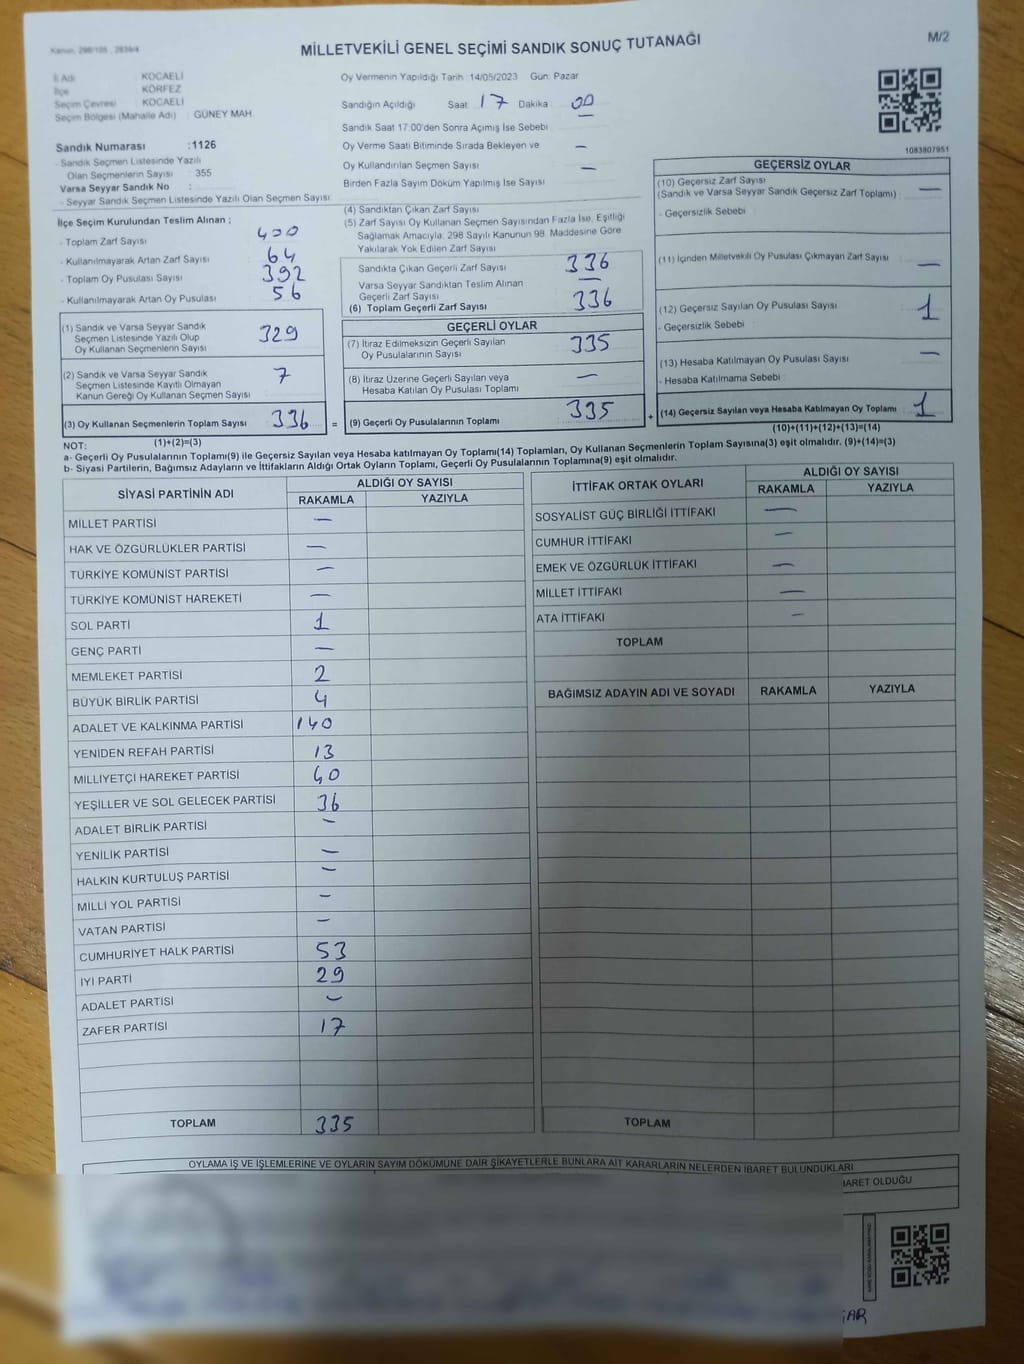 Kanun, 298/105 , 2839/4
MİLLETVEKİLİ GENEL SEÇİMİ SANDIK SONUÇ TUTANAĞI
M/2
İl Adı : KOCAELİ
İlçe : KÖRFEZ
Seçim Çevresi : KOCAELİ
Seçim Bölgesi (Mahalle Adı) : GÜNEY MAH.
Sandık Numarası :1126
- Sandık Seçmen Listesinde Yazılı
Olan Seçmenlerin Sayısı : 355
Varsa Seyyar Sandık No :
- Seyyar Sandık Seçmen Listesinde Yazılı Olan Seçmen Sayısı :
Oy Vermenin Yapıldığı Tarih :14/05/2023 Gün: Pazar
Sandığın Açıldığı Saat 17 Dakika 00
Sandık Saat 17:00'den Sonra Açımış İse Sebebi
Oy Verme Saati Bitiminde Sırada Bekleyen ve —
Oy Kullandırılan Seçmen Sayısı —
Birden Fazla Sayım Döküm Yapılmış İse Sayısı
1083807951
İlçe Seçim Kurulundan Teslim Alınan ;
- Toplam Zarf Sayısı 400
- Kullanılmayarak Artan Zarf Sayısı 64
- Toplam Oy Pusulası Sayısı 392
- Kullanılmayarak Artan Oy Pusulası 56
(1) Sandık ve Varsa Seyyar Sandık
Seçmen Listesinde Yazılı Olup
Oy Kullanan Seçmenlerin Sayısı 329
(2) Sandık ve Varsa Seyyar Sandık
Seçmen Listesinde Kayıtlı Olmayan
Kanun Gereği Oy Kullanan Seçmen Sayısı 7
(3) Oy Kullanan Seçmenlerin Toplam Sayısı 336
(1)+(2)=(3)
(4) Sandıktan Çıkan Zarf Sayısı
(5) Zarf Sayısı Oy Kullanan Seçmen Sayısından Fazla İse, Eşitliği
Sağlamak Amacıyla, 298 Sayılı Kanunun 98. Maddesine Göre
Yakılarak Yok Edilen Zarf Sayısı
Sandıkta Çıkan Geçerli Zarf Sayısı 336
Varsa Seyyar Sandıktan Teslim Alınan
Geçerli Zarf Sayısı —
(6) Toplam Geçerli Zarf Sayısı 336
GEÇERLİ OYLAR
(7) İtiraz Edilmeksizin Geçerli Sayılan
Oy Pusulalarının Sayısı 335
(8) İtiraz Üzerine Geçerli Sayılan veya
Hesaba Katılan Oy Pusulası Toplamı —
= (9) Geçerli Oy Pusulalarının Toplamı 335 +
GEÇERSİZ OYLAR
(10) Geçersiz Zarf Sayısı
(Sandık ve Varsa Seyyar Sandık Geçersiz Zarf Toplamı) —
- Geçersizlik Sebebi :
(11) İçinden Milletvekili Oy Pusulası Çıkmayan Zarf Sayısı —
(12) Geçersiz Sayılan Oy Pusulası Sayısı 1
- Geçersizlik Sebebi :
(13) Hesaba Katılmayan Oy Pusulası Sayısı —
- Hesaba Katılmama Sebebi :
(14) Geçersiz Sayılan veya Hesaba Katılmayan Oy Toplamı 1
(10)+(11)+(12)+(13)=(14)
NOT:
a- Geçerli Oy Pusulalarının Toplamı(9) ile Geçersiz Sayılan veya Hesaba katılmayan Oy Toplamı(14) Toplamları, Oy Kullanan Seçmenlerin Toplam Sayısına(3) eşit olmalıdır. (9)+(14)=(3)
b- Siyasi Partilerin, Bağımsız Adayların ve İttifakların Aldığı Ortak Oyların Toplamı, Geçerli Oy Pusulalarının Toplamına(9) eşit olmalıdır.
SİYASİ PARTİNİN ADI ALDIĞI OY SAYISI
RAKAMLA YAZIYLA
MİLLET PARTİSİ —
HAK VE ÖZGÜRLÜKLER PARTİSİ —
TÜRKİYE KOMÜNİST PARTİSİ —
TÜRKİYE KOMÜNİST HAREKETİ —
SOL PARTİ 1
GENÇ PARTİ —
MEMLEKET PARTİSİ 2
BÜYÜK BİRLİK PARTİSİ 4
ADALET VE KALKINMA PARTİSİ 140
YENİDEN REFAH PARTİSİ 13
MİLLİYETÇİ HAREKET PARTİSİ 40
YEŞİLLER VE SOL GELECEK PARTİSİ 36
ADALET BİRLİK PARTİSİ —
YENİLİK PARTİSİ —
HALKIN KURTULUŞ PARTİSİ —
MİLLİ YOL PARTİSİ —
VATAN PARTİSİ —
CUMHURİYET HALK PARTİSİ 53
İYİ PARTİ 29
ADALET PARTİSİ —
ZAFER PARTİSİ 17
TOPLAM 335
İTTİFAK ORTAK OYLARI ALDIĞI OY SAYISI
RAKAMLA YAZIYLA
SOSYALİST GÜÇ BİRLİĞİ İTTİFAKI —
CUMHUR İTTİFAKI —
EMEK VE ÖZGÜRLÜK İTTİFAKI —
MİLLET İTTİFAKI —
ATA İTTİFAKI —
TOPLAM
BAĞIMSIZ ADAYIN ADI VE SOYADI RAKAMLA YAZIYLA
TOPLAM
OYLAMA İŞ VE İŞLEMLERİNE VE OYLARIN SAYIM DÖKÜMÜNE DAİR ŞİKAYETLERLE BUNLARA AİT KARARLARIN NELERDEN İBARET BULUNDUKLARI
BARET OLDUĞU